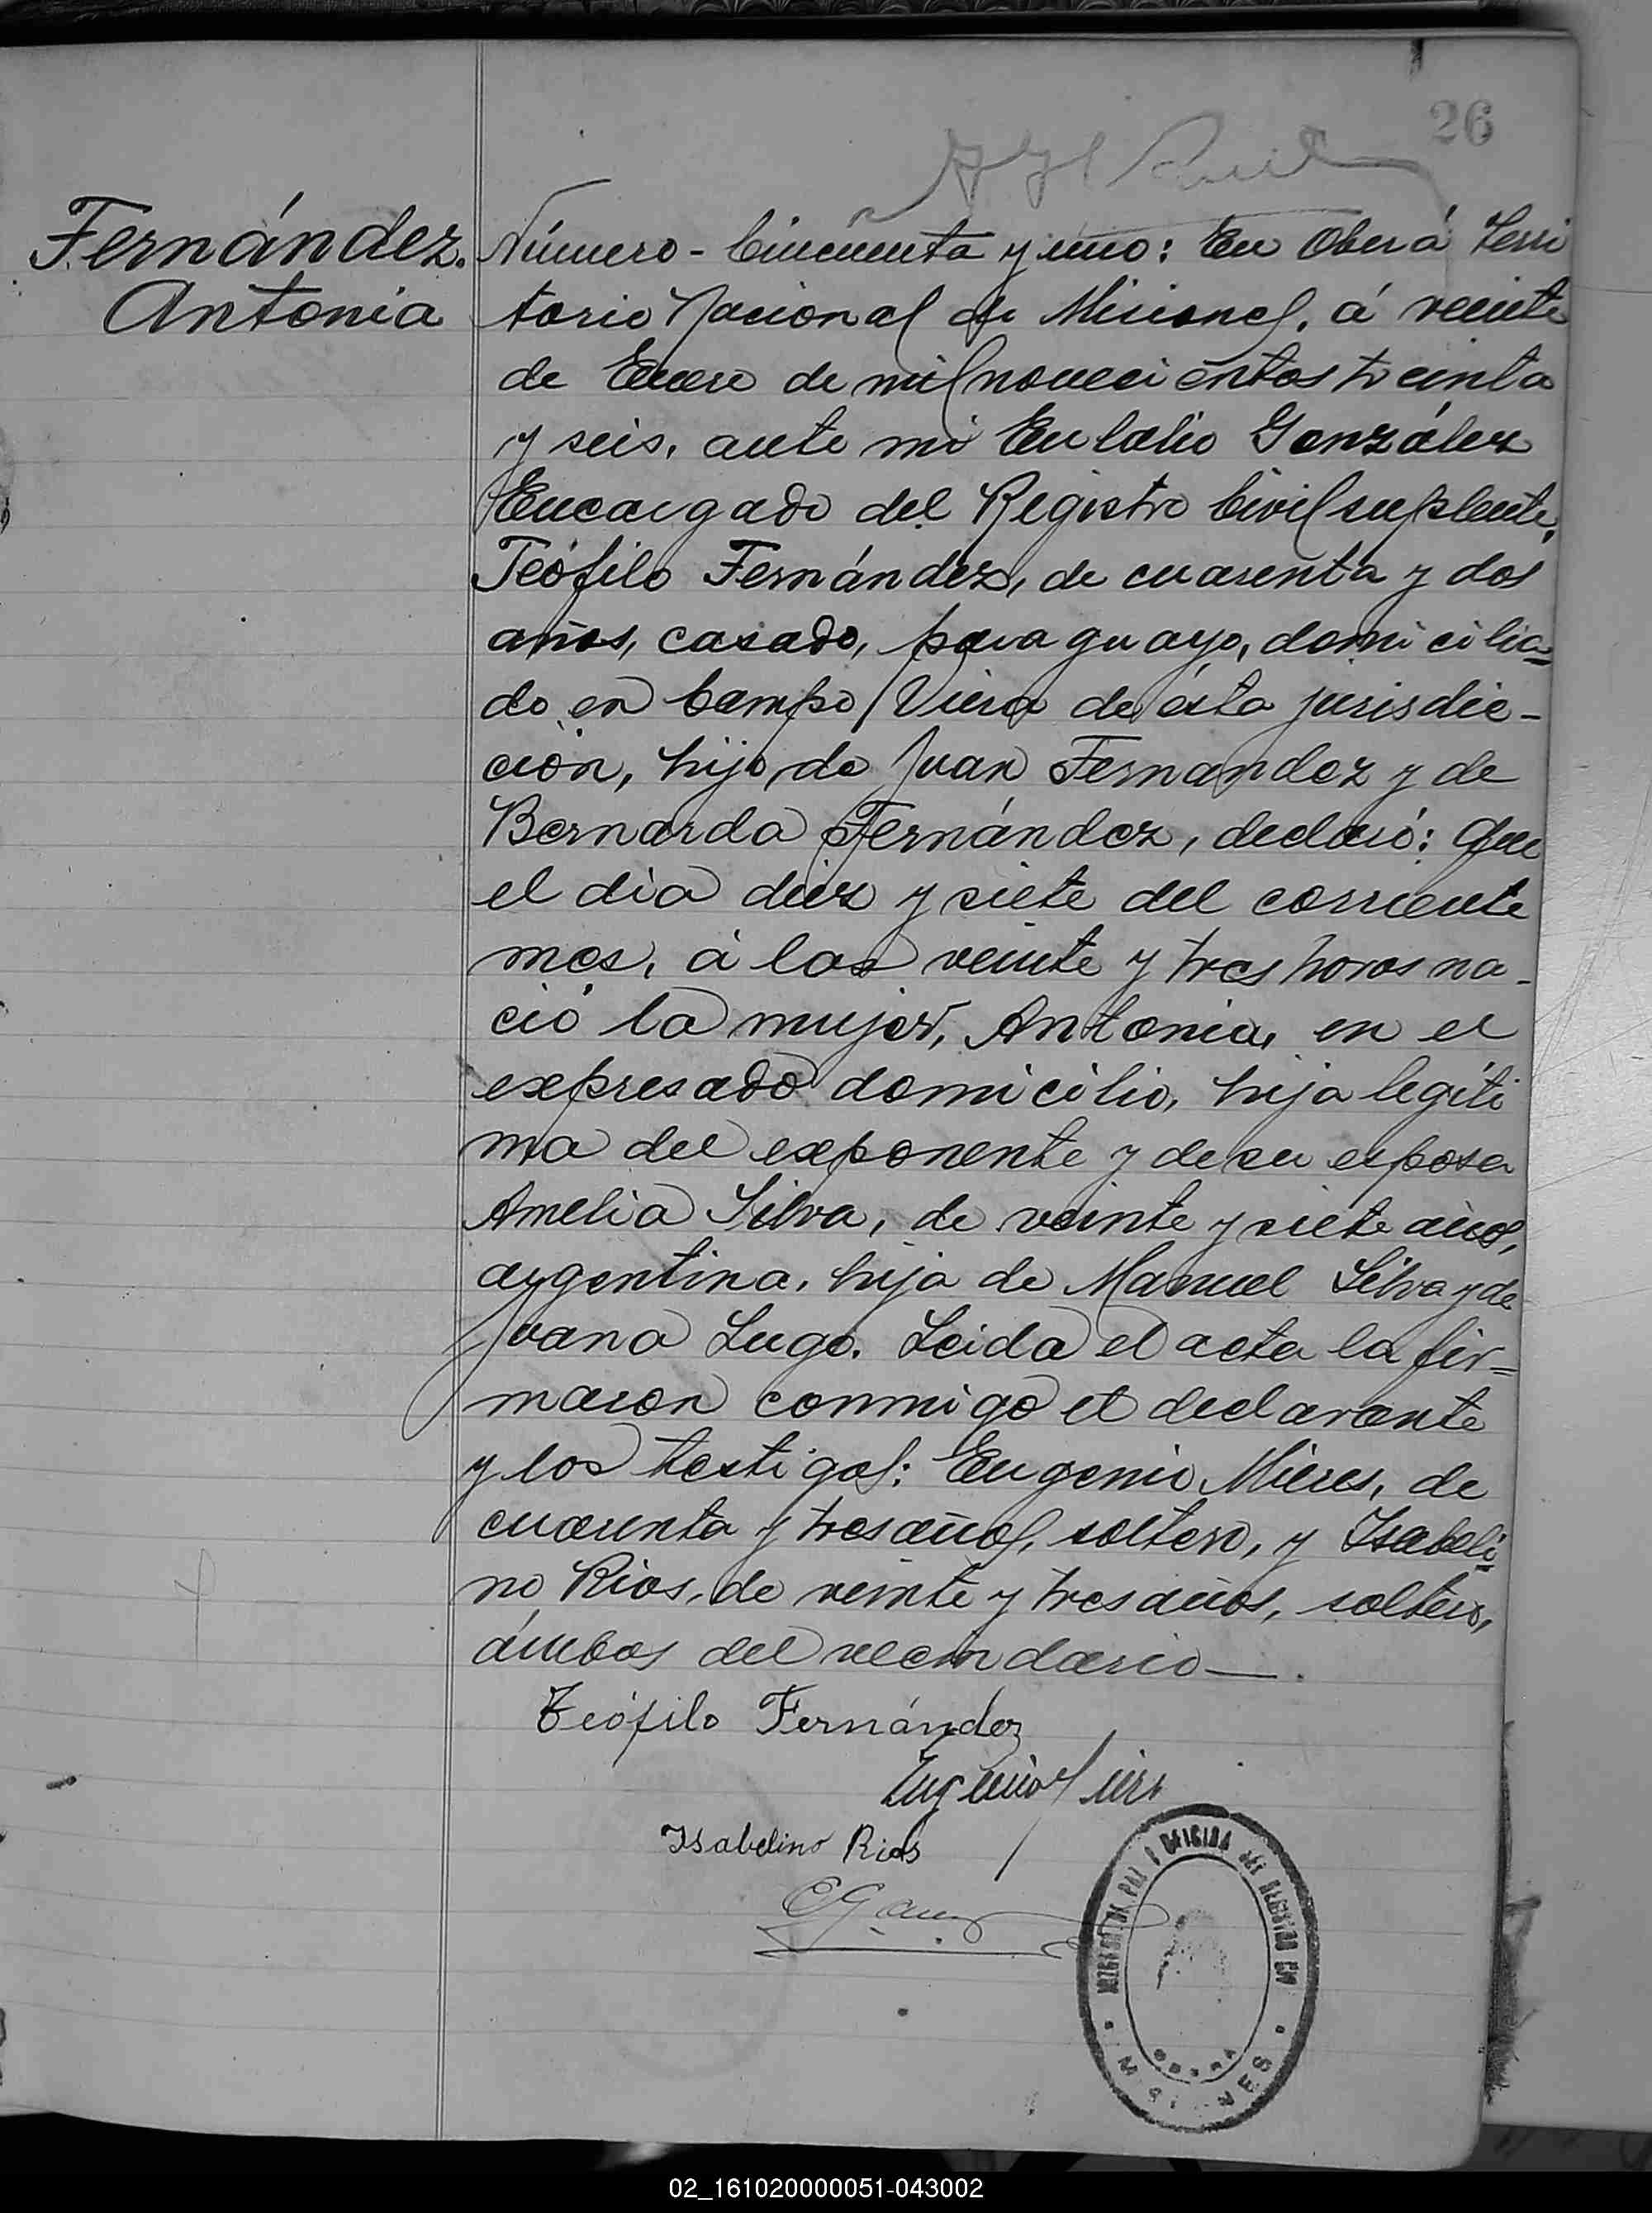 26
Fernández.
Antonia
Número - Cincuenta y uno: En Oberá Terri
torio Nacional de Misiones, á veinte
de Enero de mil novecientos treinta
y seis, ante mi Eulalio González
Encargado del Registro Civil suplente,
Teófilo Fernández, de cuarenta y dos
años, casado, paraguayo, domicilia=
do en Campo Viera de ésta jurisdic-
ción, hijo de Juan Fernandez y de
Bernarda Fernández, declaró: Que
el dia diez y siete del corriente
mes, á las veinte y tres horas na-
ció la mujer, Antonia, en el
expresado domicilio, hija legíti
ma del exponente y de su esposa
Amelia Silva, de veinte y siete años,
argentina, hija de Manuel Silva y de
Juana Lugo. Leida el acta la fir=
maron conmigo el declarante
y los testigos: Eugenio Mieres, de
cuarenta y tres años, soltero, y Isabeli=
no Rios, de veinte y tres años, soltero,
ámbos del vecindario—.
Teófilo Fernández
Eugenio Mieres
Isabelino Rios
JUZGADO DE PAZ Y OFICINA DEL REGISTRO CIVIL
OBERA
MISIONES
02_161020000051-043002